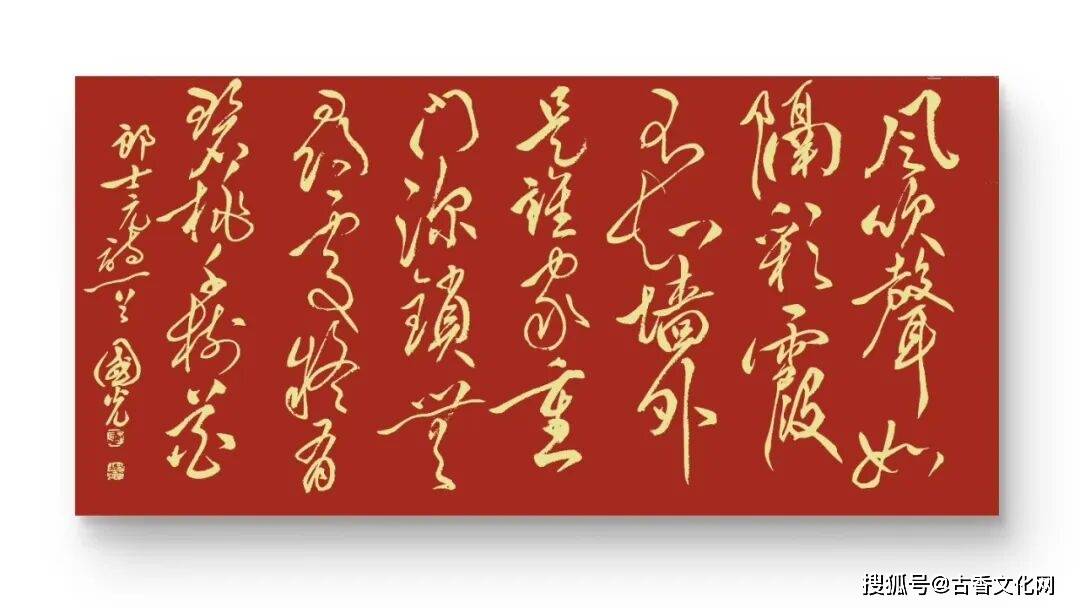 凤吹聲如
隔彩霞
不知墙外
是誰家重
门深鎖無
尋處疑有
碧桃千樹花
郎士元詩一首 國光
搜狐号@古香文化网